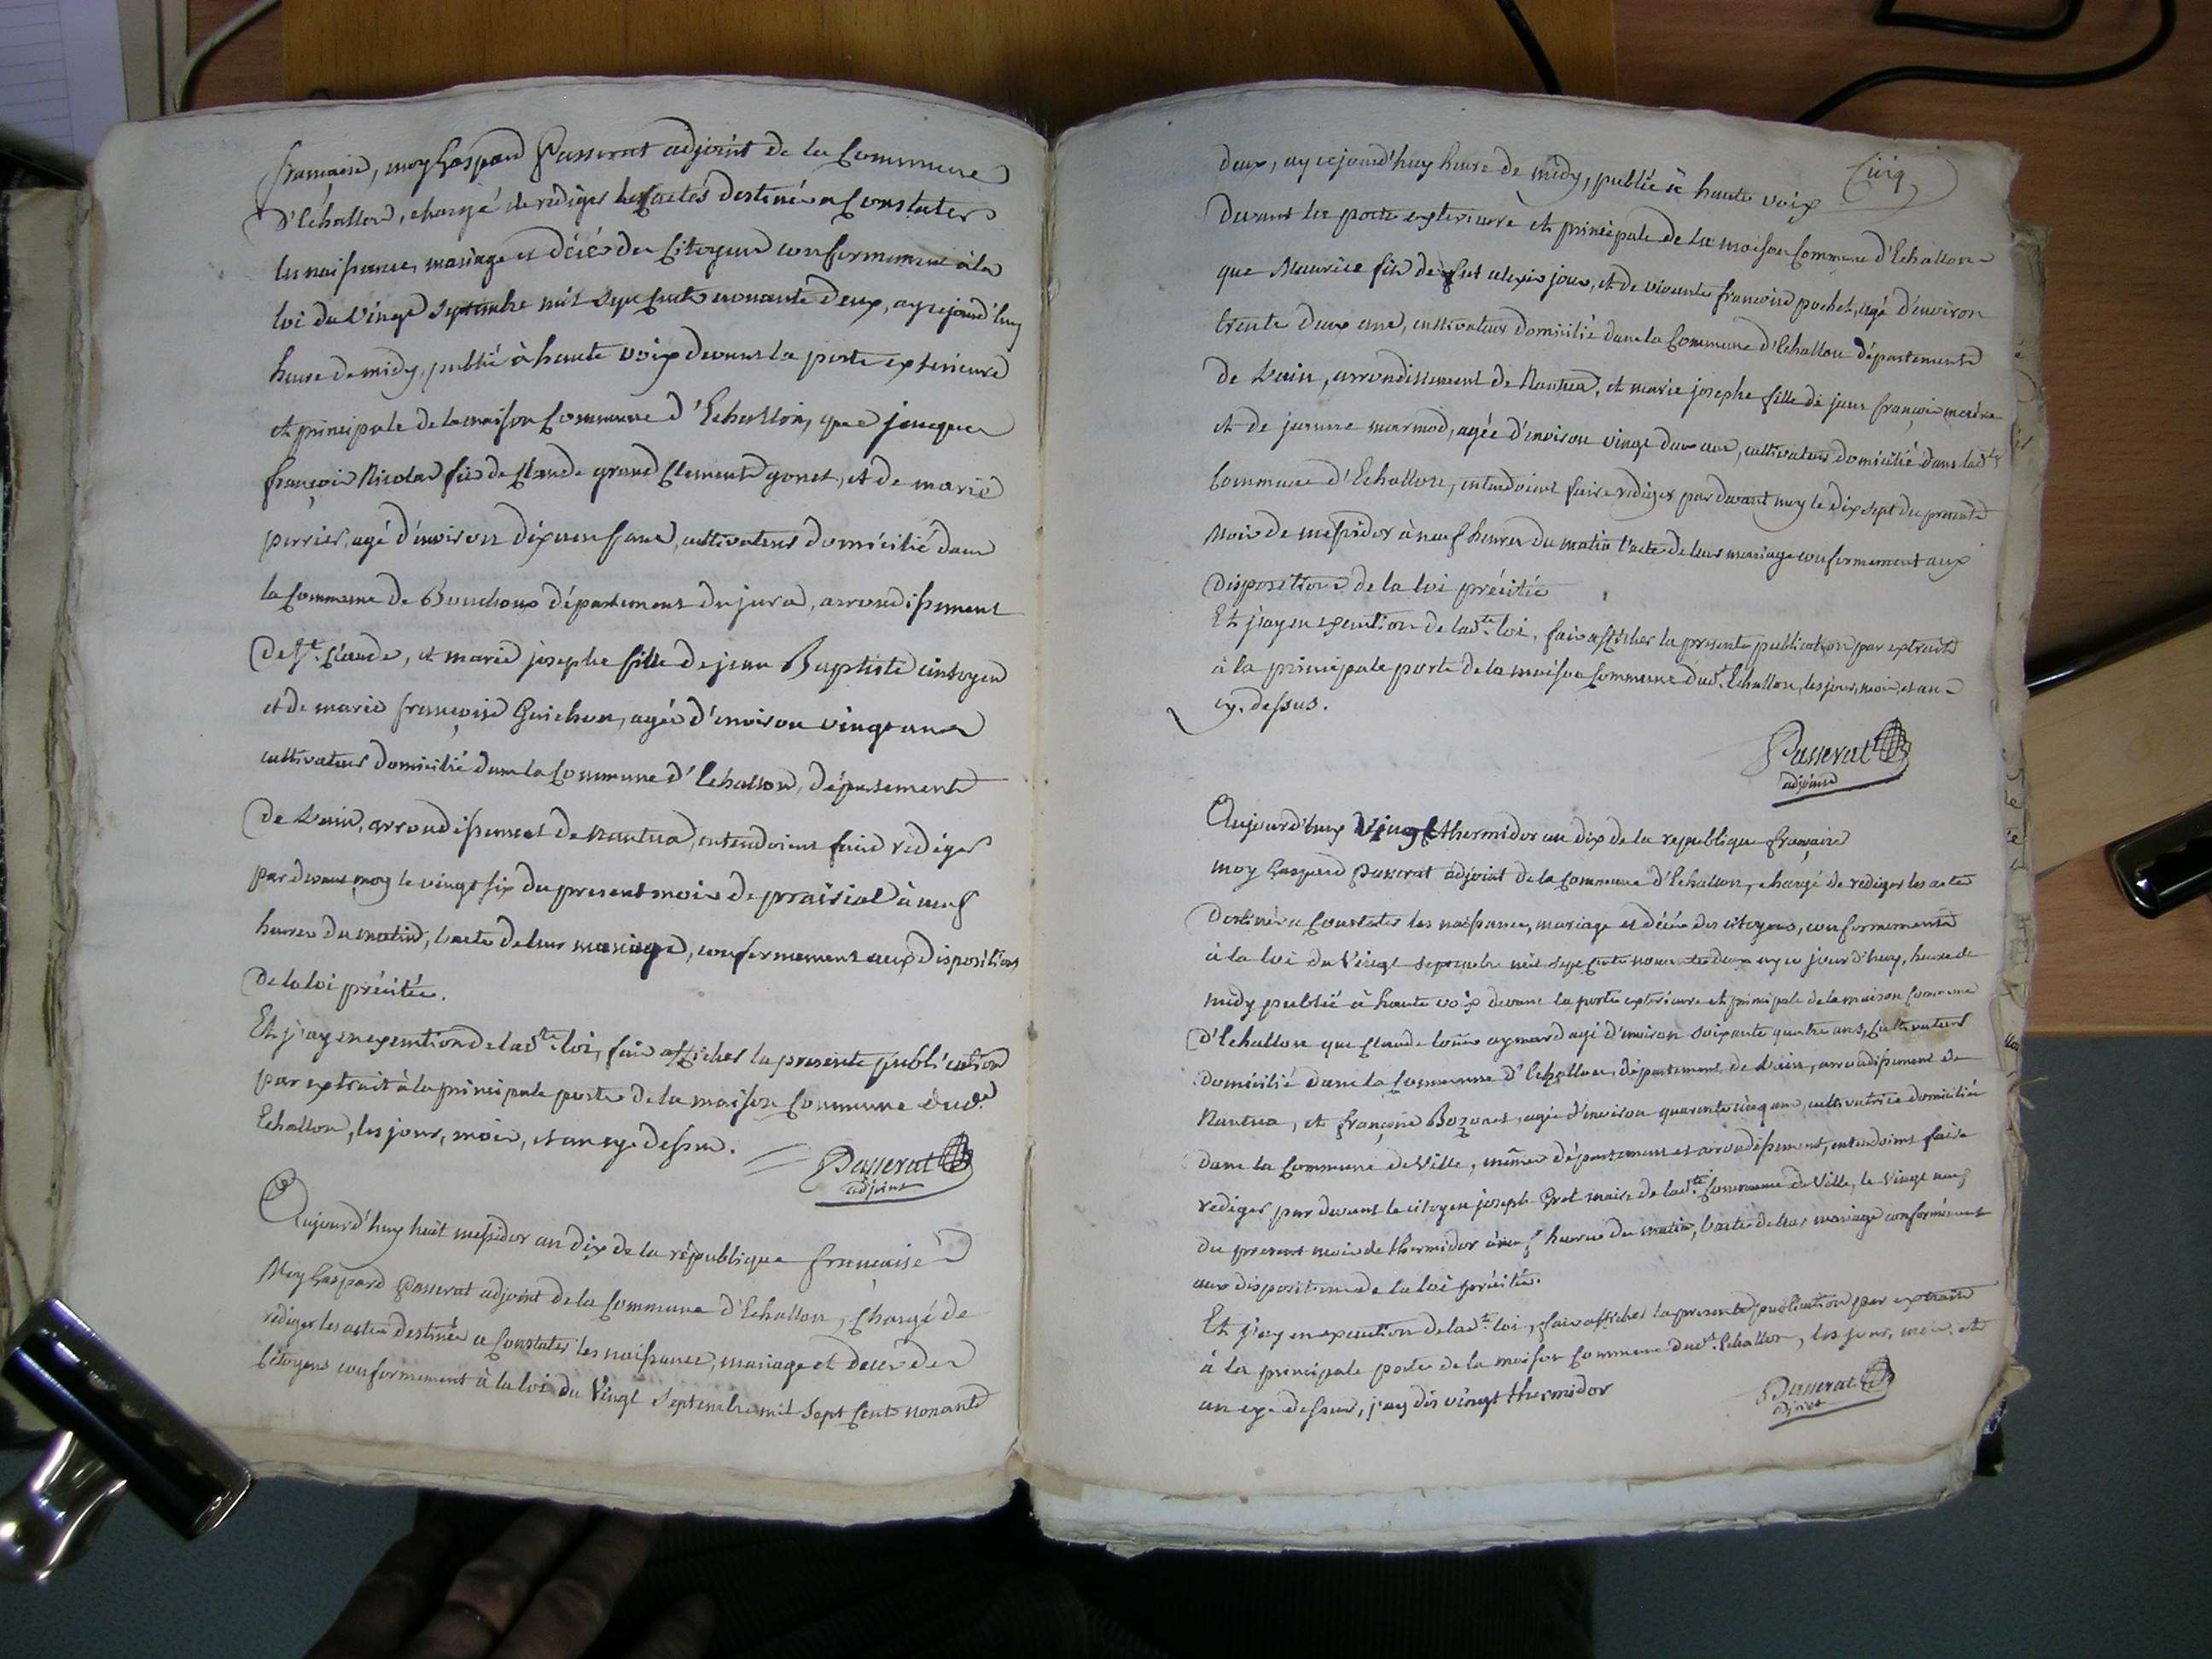 française, moy Gaspard Passerat adjoint de la Commune
d'Echallon, chargé de rediger les actes destinés a Constater
les naissance, mariage et décés des Citoyens conformement à la
loi du Vingt Septembre mil Sept Cents nonante deux, ay cejourd'huy
heure de midy, publié à haute voix devant la porte exterieure
et principale de la maison Commune d'Echallon, que jacques
françois Nicolas fils de Claude grand Clement gonet, et de marie
perrier, agé d'environ dixneuf ans, cultivateur domicilié dans
la Commune de Bouchoux département du jura, arrondissement
de St. Claude, et marie josephe fille de jean Baptiste
et de marie françoise Guichon, agée d'environ vingt ans
cultivateur domicilié dans la Commune d'Echallon, département
de L'ain, arrondissement de Nantua, entendoient faire rédiger
par devant moy le vingt six du present mois de prairial à neuf
heures du matin, l'acte de leur mariage, conformement aux dispositions
de la loi précitée.
Et j'ay en execution de ladte. loi, fait afficher la presente publication
par extrait à la principale porte de la maison Commune dudt.
Echallon, les jour, mois, et an cy dessus.
Passerat
adjoint
Aujourd'huy huit messidor an dix de la république française
Moy Gaspard Passerat adjoint de la Commune d'Echallon, Chargé de
rediger les actes destinés a Constater les naissance, mariage et decés des
Citoyens conformement à la loi du Vingt Septembre mil Sept Cents nonante
Cinq
deux, ay cejourd'huy heure de midy, publié à haute voix
devant la porte exterieure et principale de la maison Commune d'Echallon
que Maurice fils de fut alexis joux, et de vivante françoise pochet, agé d'environ
trente deux ans, cultivateur domicilié dans la Commune d'Echallon département
de L'ain, arrondissement de Nantua, et marie josephe fille de jean françois
et de jeanne marmod, agée d'environ vingt deux ans, cultivateur domicilié dans ladte
Commune d'Echallon, entendoient faire rediger par devant moy le dix sept du present
Mois de messidor à neuf heures du matin l'acte de leur mariage conformement aux
dispositions de la loi précitée
Et j'ay en execution de ladte. loi, fait afficher la presente publication par extrait
à la principale porte de la maison Commune dudt. Echallon, les jour, mois et an
cy. dessus.
Passerat
adjoint
Aujourd'huy Vingt thermidor an dix de la republique française
moy Gaspard Passerat adjoint de la Commune d'Echallon, chargé de rediger les actes
destinés a Constater les naissance, mariage et décés des citoyens, conformement
à la loi du Vingt Septembre mil Sept Cents nonante deux ay ce jourd'huy, heure de
midy publié à haute voix devant la porte exterieure et principale de la maison Commune
d'Echallon que Claude aymard agé d'environ Soixante quatre ans, Cultivateur
domicilié dans la Commune d'Echallon, département de L'ain, arrondissement de
Nantua, et françoise Bozonet, agée d'environ quarante cinq ans, cultivatrice domiciliée
dans la Commune de Ville, même département et arrondissement, entendoient faire
rediger par devant le citoyen joseph Gret maire de ladte. Commune de Ville, le Vingt neuf
du present mois de thermidor à neuf heures du matin, l'acte de leur mariage conformément
aux dispositions de la loi précitée.
Et j'ay en execution de ladte. loi, fait afficher la presente publication par extrait
à la principale porte de la maison Commune dudt. Echallon, les jour, mois et
an cy. dessus, j'ay dis vingt thermidor
Passerat
adjoint